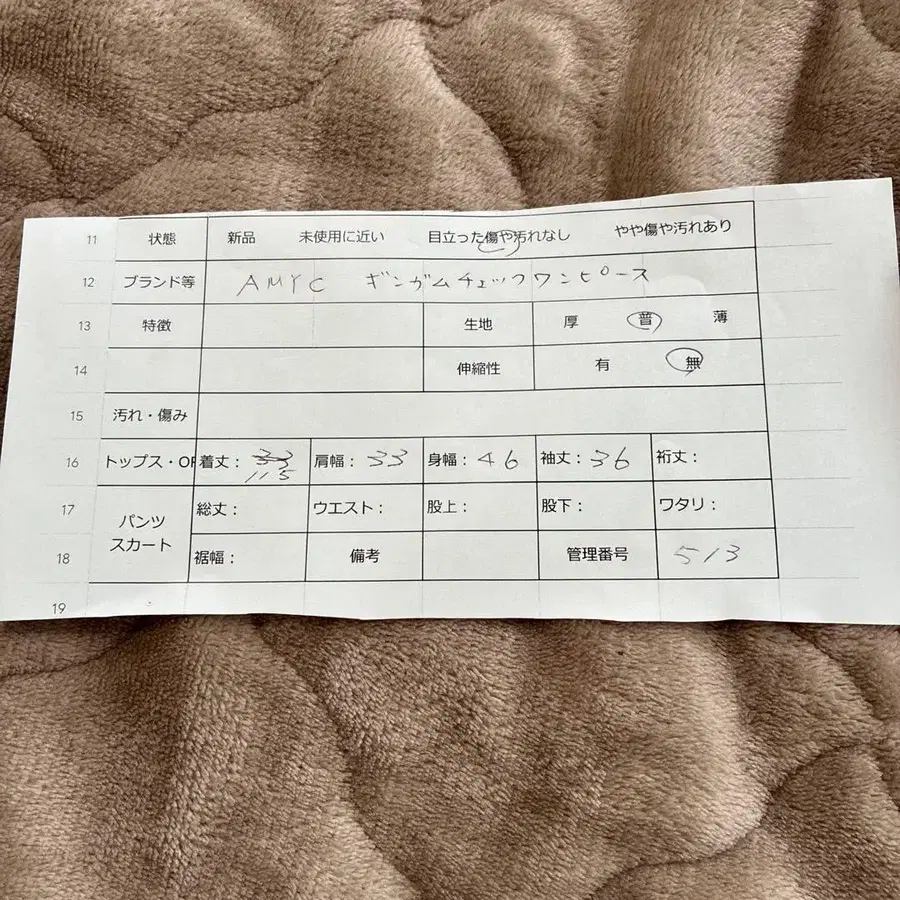 11 状態 新品 未使用に近い 目立った傷や汚れなし やや傷や汚れあり
12 ブランド等 AMYC ギンガムチェックワンピース
13 特徴 生地 厚 普 薄
14 伸縮性 有 無
15 汚れ・傷み
16 トップス・OP 着丈: 33 115 肩幅: 33 身幅: 46 袖丈: 36 裄丈:
17 パンツ 総丈: ウエスト: 股上: 股下: ワタリ:
18 スカート 裾幅: 備考 管理番号 513
19